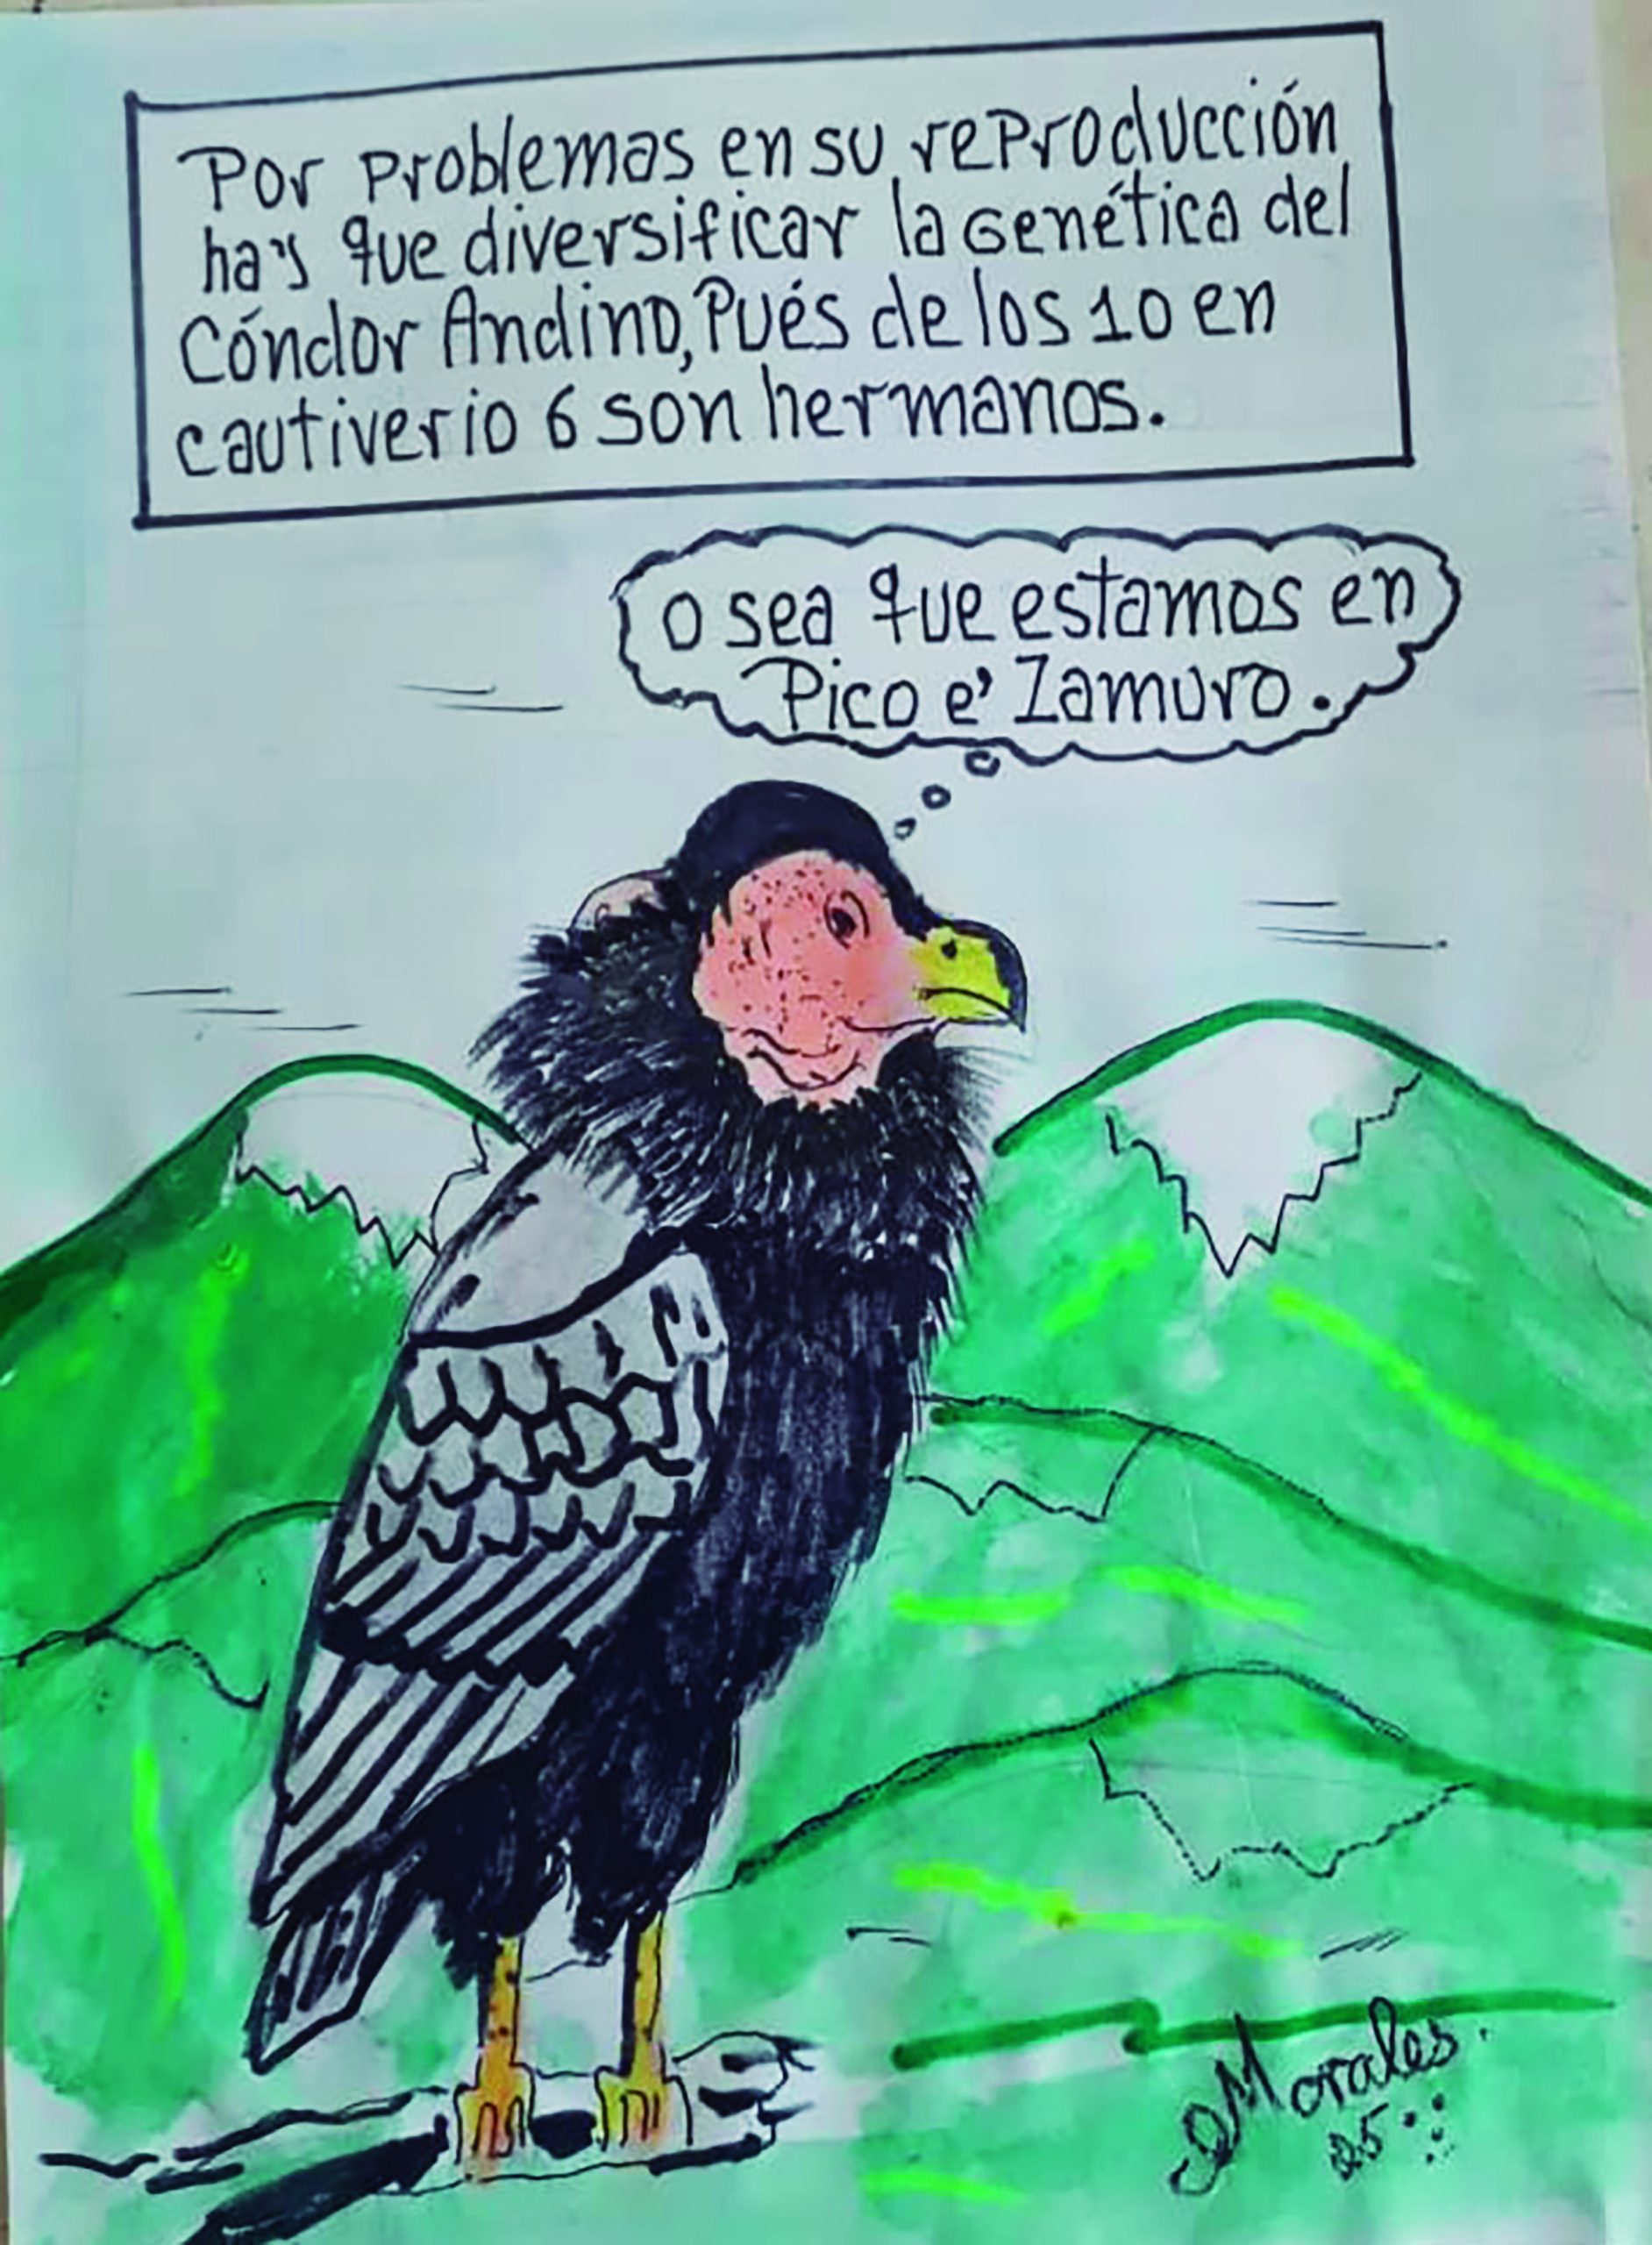 Por problemas en su reproducción
hay que diversificar la genética del
Cóndor Andino, Pués de los 10 en
cautiverio 6 son hermanos.
O sea que estamos en
Pico e' Zamuro.
Morales
25